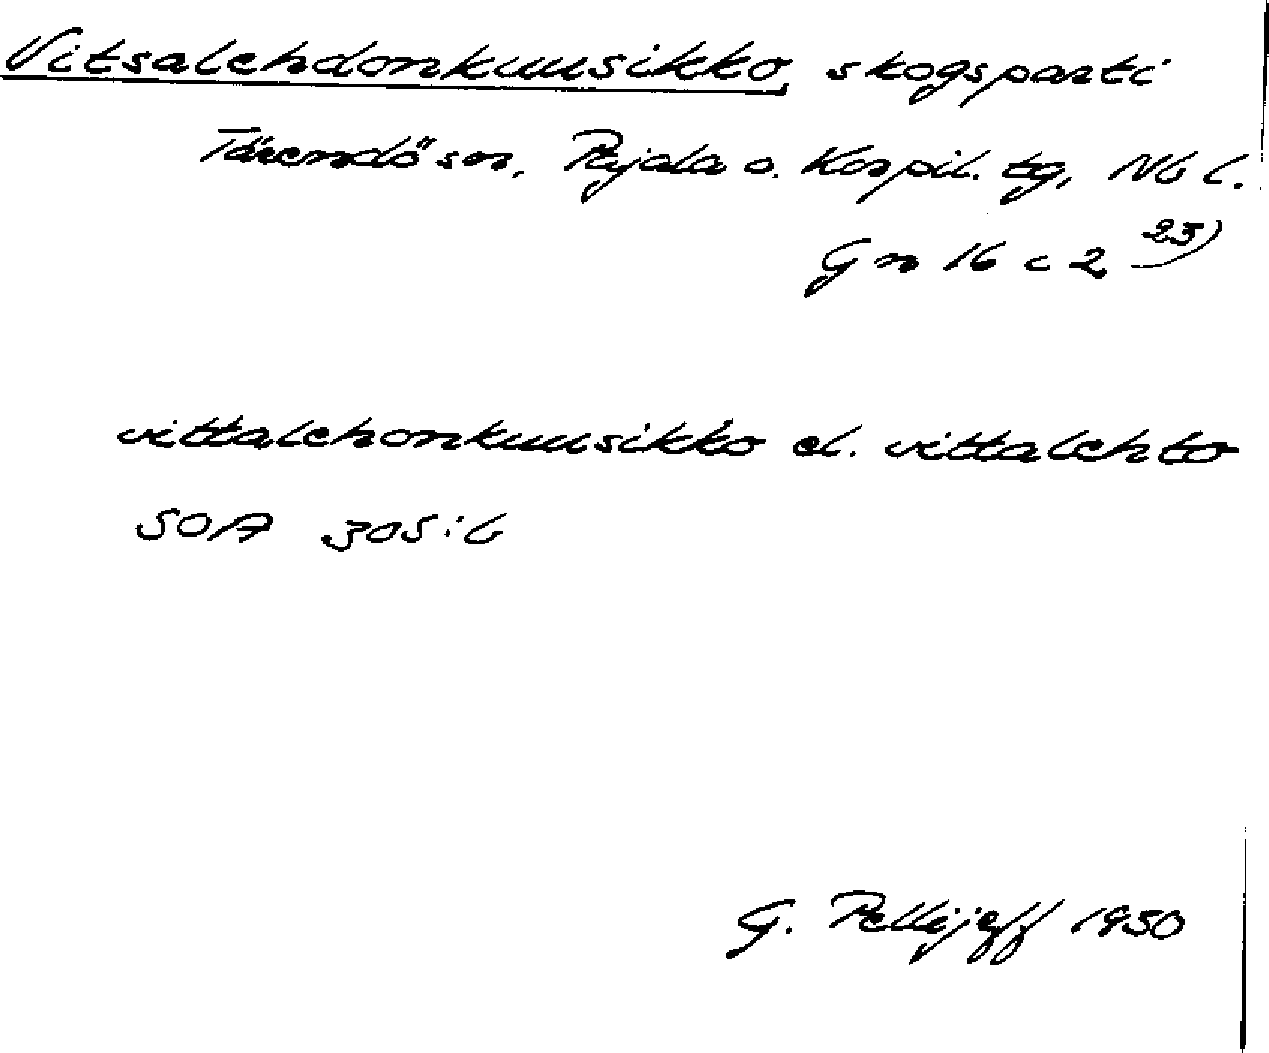 Vitsalehdonkuusikko, skogsparti
Tärendö sn, Pajala o. Korpil. tg, Nb l.
Gn 16 c 2 23)
vittalehonkuusikko el. vittalehto
SOA 305:6
G. Pellijeff 1950